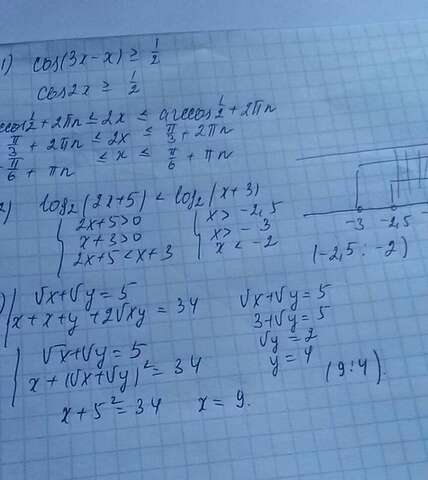 1) cos(3x-x) ≥ 1/2
cos2x ≥ 1/2
ccos 1/2 + 2πn ≤ 2x ≤ arccos 1/2 + 2πn
π/3 + 2πn ≤ 2x ≤ π/3 + 2πn
-π/6 + πn ≤ x ≤ π/6 + πn
2) log₂(2x+5) < log₂(x+3)
{ 2x+5>0
x+3>0
2x+5<x+3
{ x > -2,5
x > -3
x < -2
-3 -2,5
(-2,5 ; -2)
) { √x+√y = 5
x+x+y+2√xy = 34
{ √x+√y = 5
x+(√x+√y)² = 34
x+5² = 34 x = 9.
√x+√y = 5
3+√y = 5
√y = 2
y = 4
(9;4).